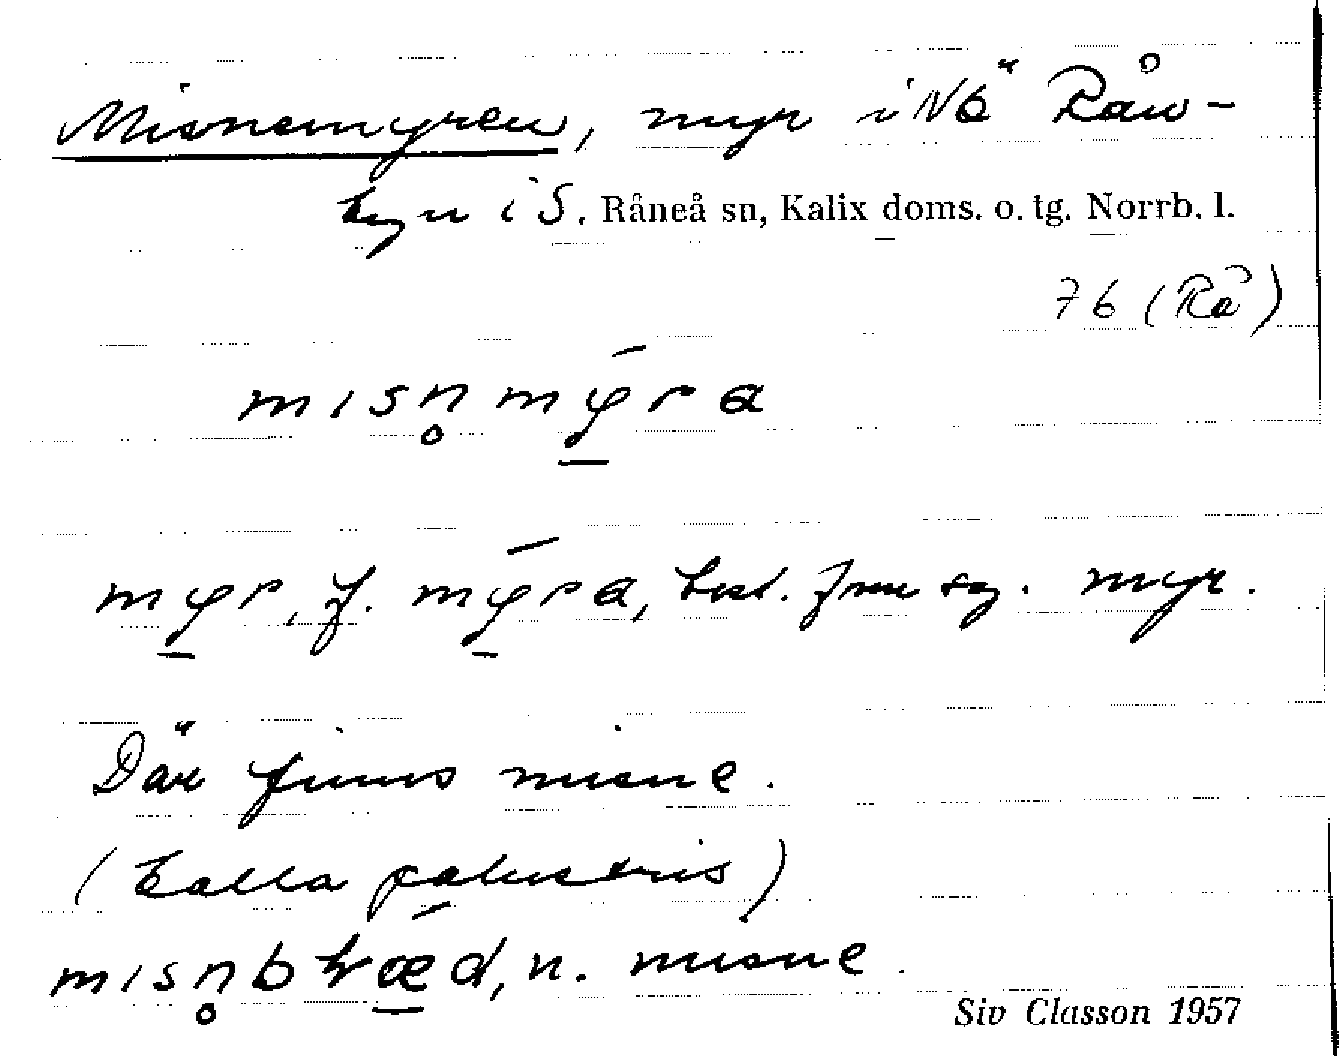 Misnemyren, myr i NÖ Rån-
byn i S. Råneå sn, Kalix doms. o. tg. Norrb. l.
76 (Rå)
mısn̥mȳ́ra
mȳr, f. mȳ́ra, best. form sg. myr.
Där finns misne.
(Calla palustris)
mısn̥b d, n. misne.
Siv Classon 1957